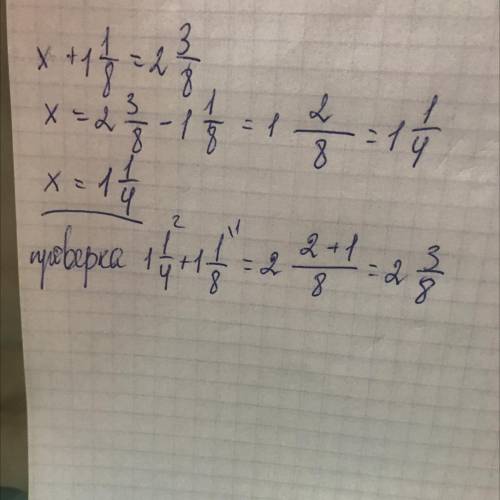 x + 1 1/8 = 2 3/8
x = 2 3/8 - 1 1/8 = 1 2/8 = 1 1/4
x = 1 1/4
проверка 1 1/4 ² + 1 1/8 ¹¹ = 2 2+1/8 = 2 3/8